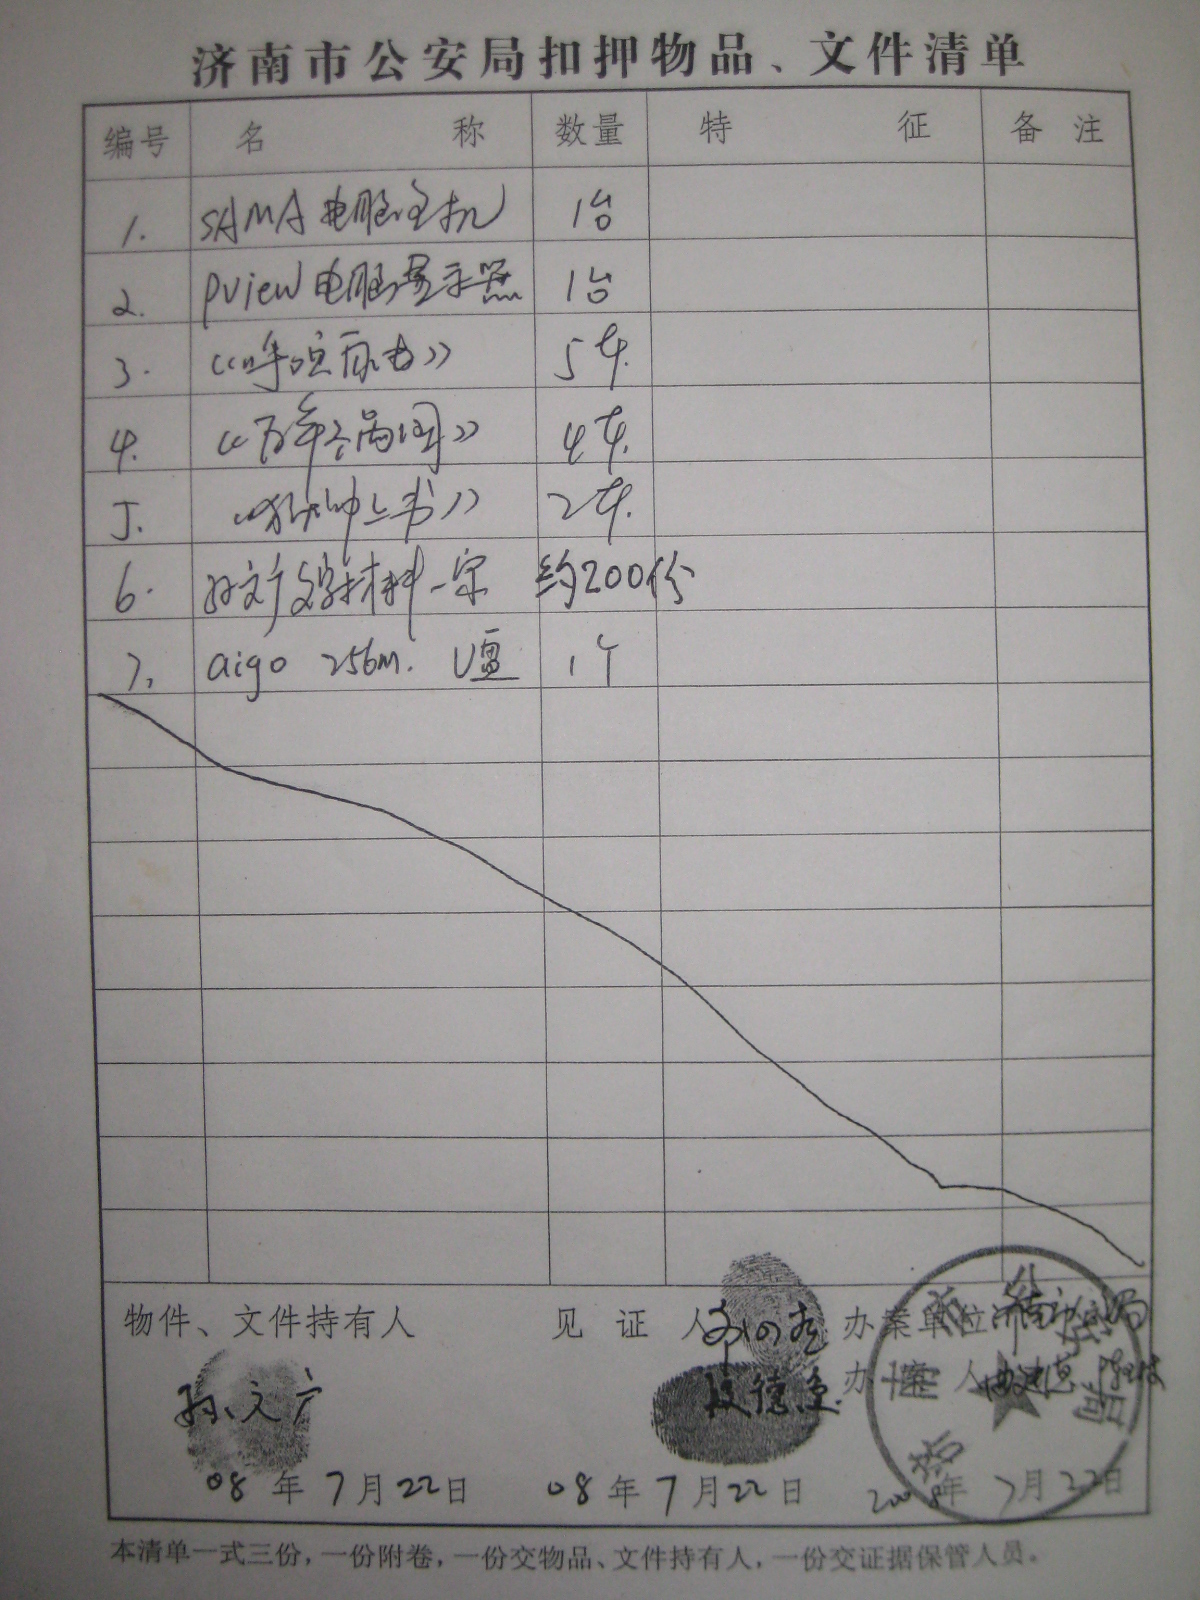 济南市公安局扣押物品、文件清单
编号 名称 数量 特征 备注
1. SAMA电脑主机 1台
2. pview电脑显示器 1台
3. 《呼唤自由》 5本.
4. 《百年祸国》 4本.
5. 《狱中上书》 2本.
6. 孙文广文字材料一宗 约200份
7. aigo 256M. U盘 1个
物件、文件持有人 见证人 办案单位 济南市公安局
办案人
孙文广
08年7月22日 08年7月22日 2008年7月22日
本清单一式三份，一份附卷，一份交物品、文件持有人，一份交证据保管人员。